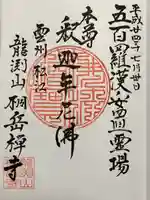 平成廿四年七月廿日
五百羅漢 霊場
本尊
釈迦牟尼佛
雲州 松江
龍淵山 桐岳禅寺